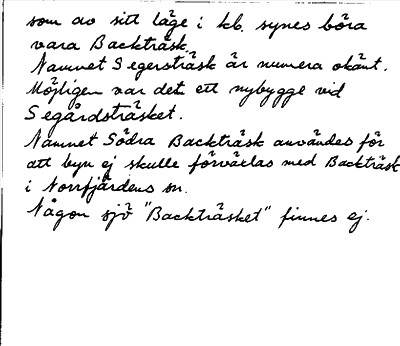 som av sitt läge i kb. synes böra
vara Backträsk.
Namnet Segersträsk är numera okänt.
Möjligen var det ett nybygge vid
Segårdsträsket.
Namnet Södra Backträsk användes för
att byn ej skulle förväxlas med Backträsk
i Norrfjärdens sn.
Någon sjö "Backträsket" finnes ej.